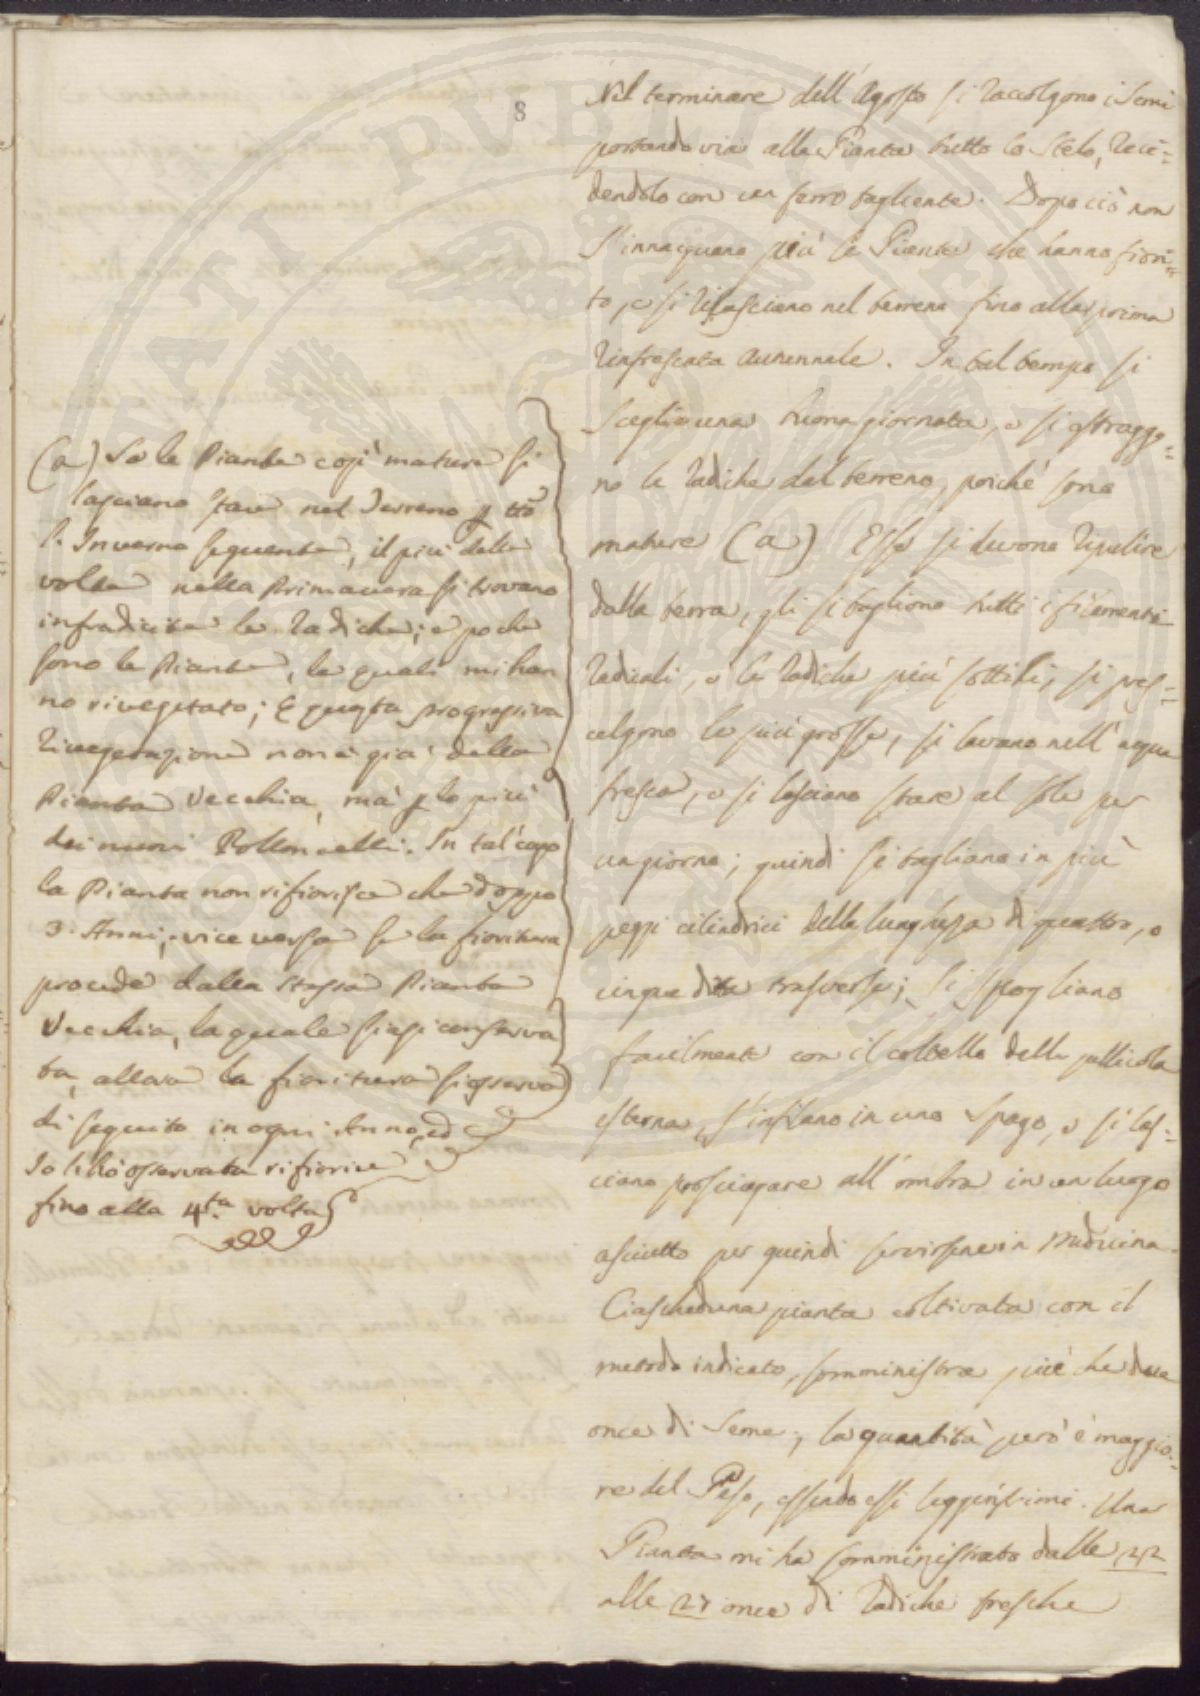 8
Nel terminare dell'Agosto si raccolgono i Semi
portando via alla Pianta tutto lo Stelo, reci=
dendolo con un ferro tagliente. Dopo ciò non
s'innacquano più le Piante che hanno fiori=
to, e si rilasciano nel terreno fino alla prima
rinfrescata autunnale. In tal tempo si
sceglie una buona giornata, e si estraggo=
no le radiche dal terreno, poichè sono
mature (a) Esse si devono ripulire
dalla terra, gli si tagliono tutti i filamenti
radicali, e le radiche più sottili; si pres=
celgono le più grosse, si lavano nell'acqua
fresca, e si lasciano stare al sole per
un giorno; quindi si tagliano in più
pezzi cilindrici della lunghezza di quattro, o
cinque dita trasverse; si spogliano
facilmente con il coltello della pellicola
esterna, s'infilano in uno Spago, e si las=
ciano prosciugare all'ombra in un luogo
asciutto per quindi servirsene in Medicina.
Ciascheduna pianta coltivata con il
metodo indicato, somministra più che due
once di Seme; la quantità però è maggio=
re del Peso, essendo essi leggerissimi. Una
Pianta mi ha somministrato dalle
alle once di radiche fresche
(a) Se le Piante così mature si
lasciano stare nel Terreno p tto
l'Inverno seguente, il più delle
volte nella Primavera si trovano
infradicite le radiche; e poche
sono le Piante, le quali mi han
no rivegetato; E questa progressiva
rivegetazione non è già della
Pianta Vecchia, mà p lo più
dei nuovi Polloncelli. In tal caso
la Pianta non rifiorisce che doppo
3. Anni; vice versa se la fioritura
procede dalla stessa Pianta
Vecchia, la quale siasi conserva
ta, allora la fioritura si osserva
di seguito in ogni Anno, ed
Io le hò osservate rifiorire
fino alla 4.ta volta